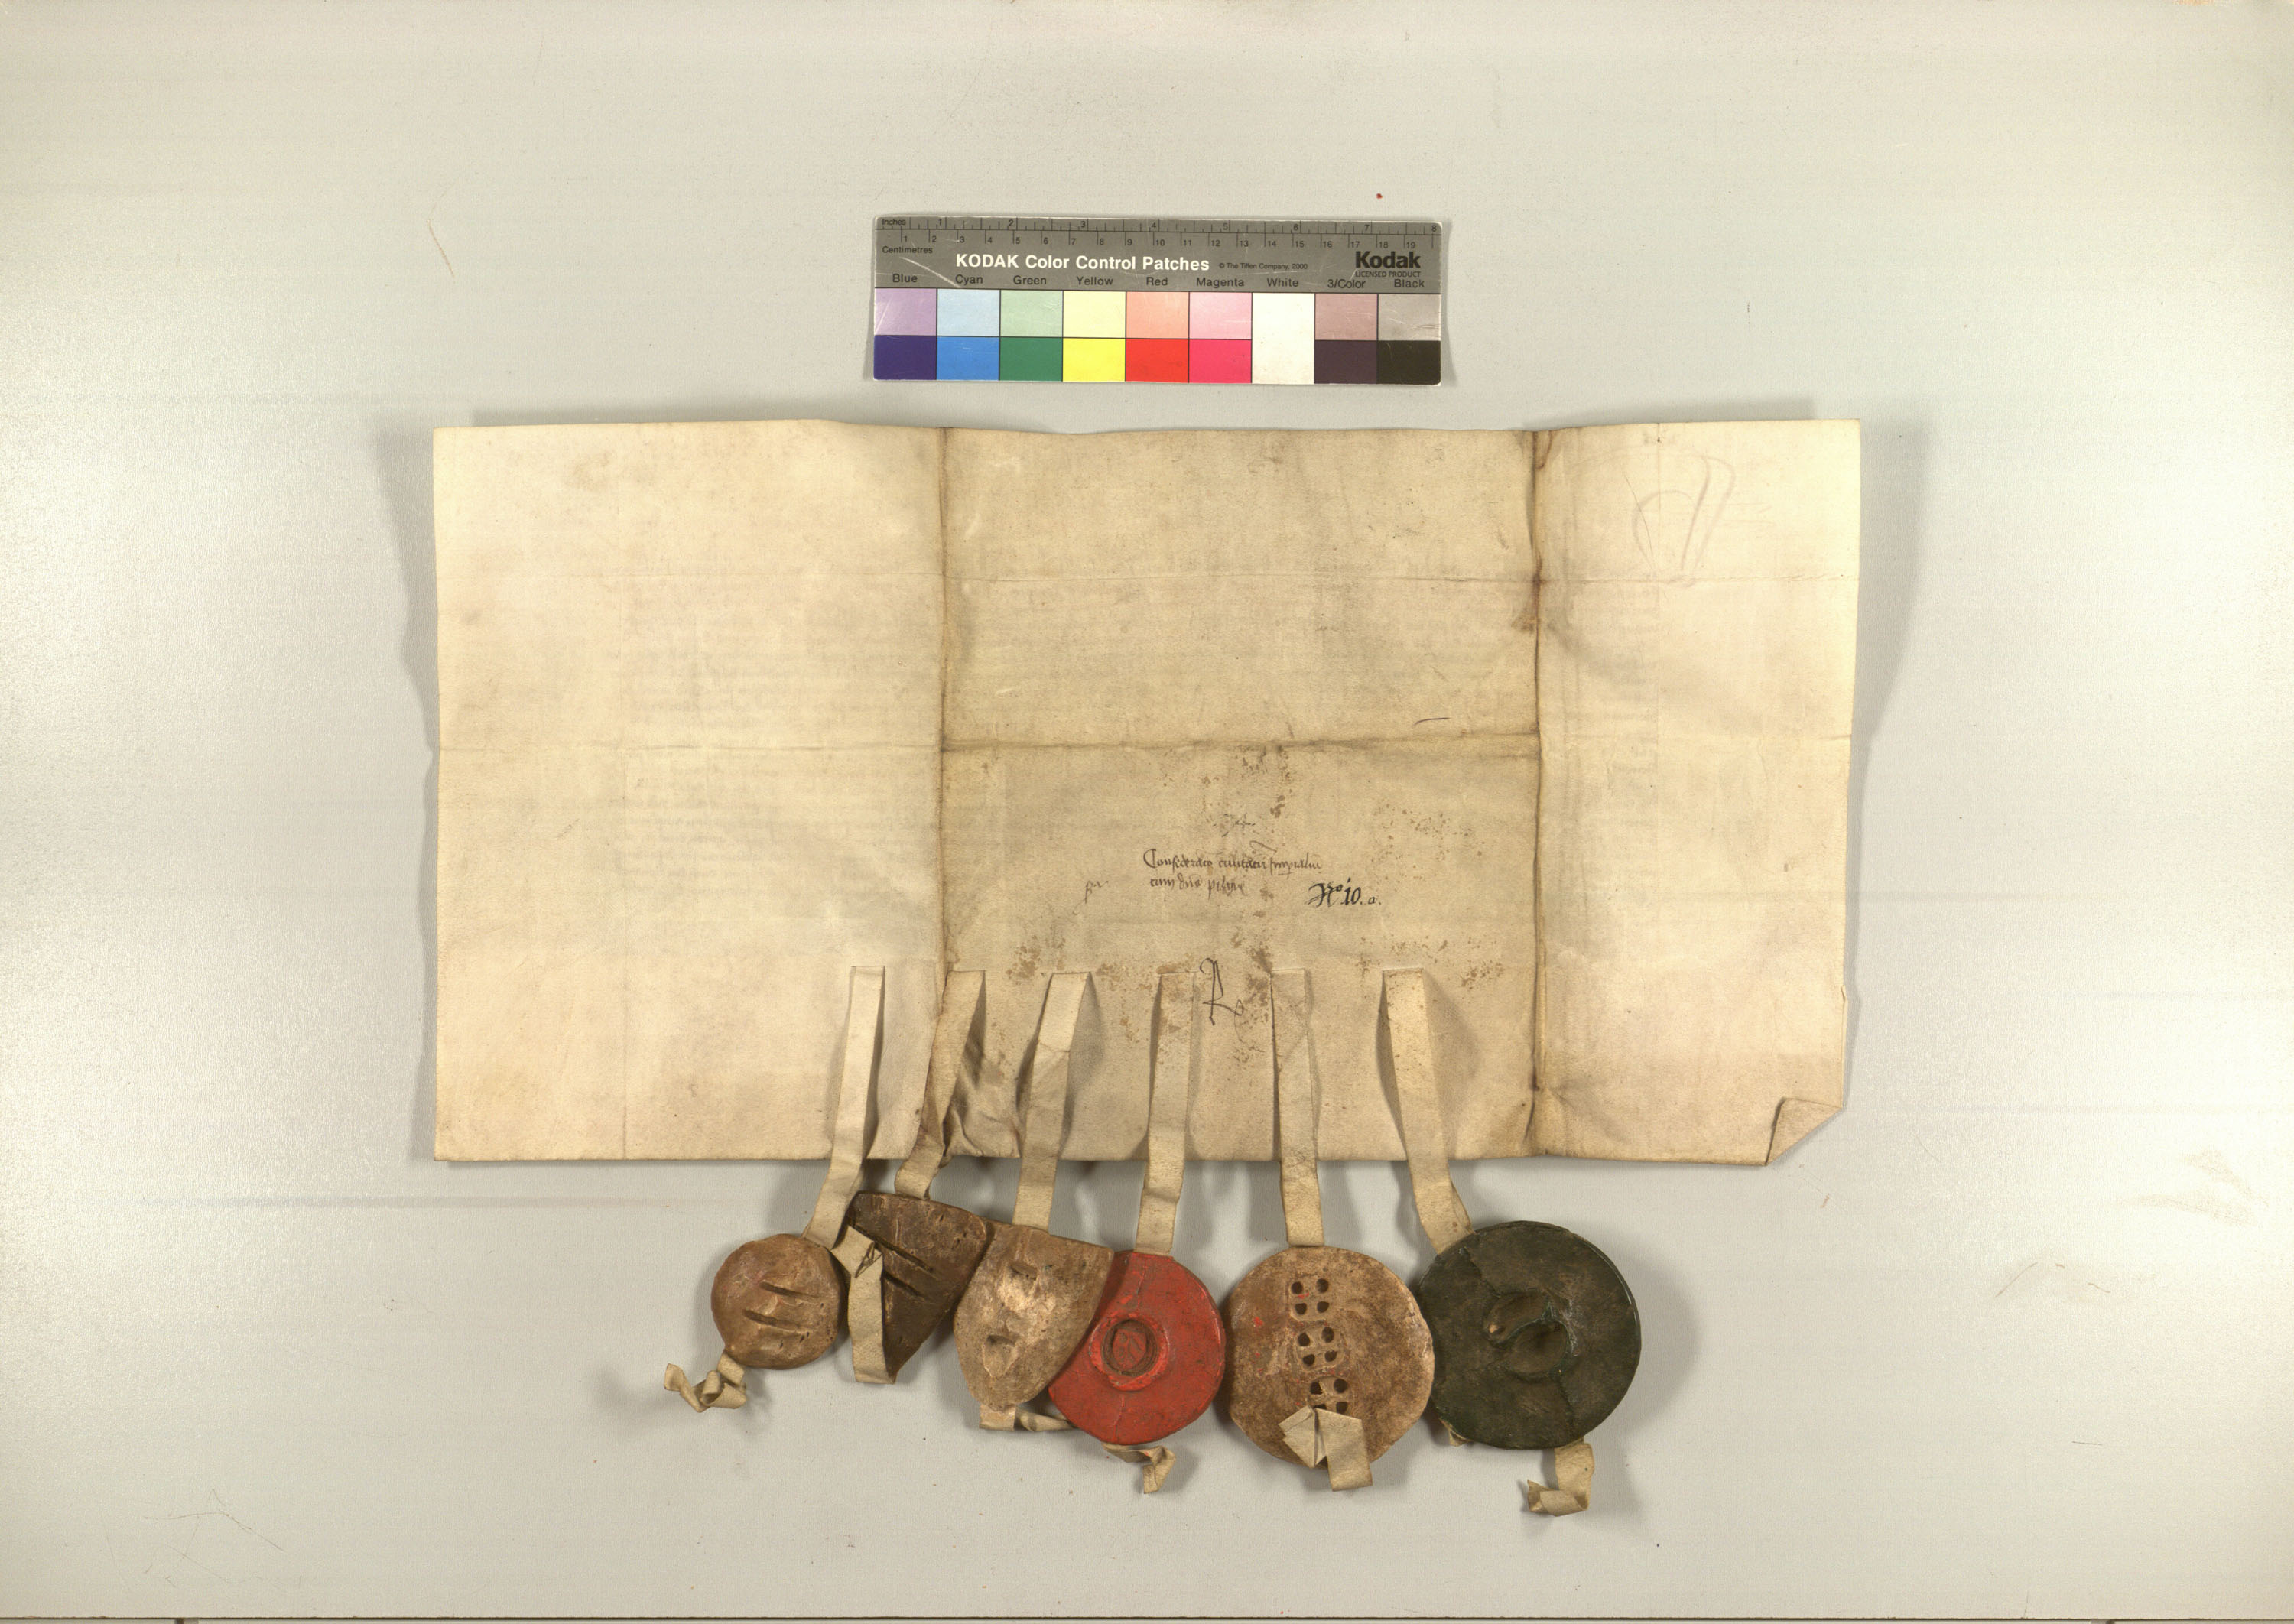 Inches 1 2 3 4 5 6 7 8
1 2 3 4 5 6 7 8 9 10 11 12 13 14 15 16 17 18 19
Centimetres
KODAK Color Control Patches © The Tiffen Company, 2000 Kodak
LICENSED PRODUCT
Blue Cyan Green Yellow Red Magenta White 3/Color Black
Confederatio
cum
No 10. a.
R